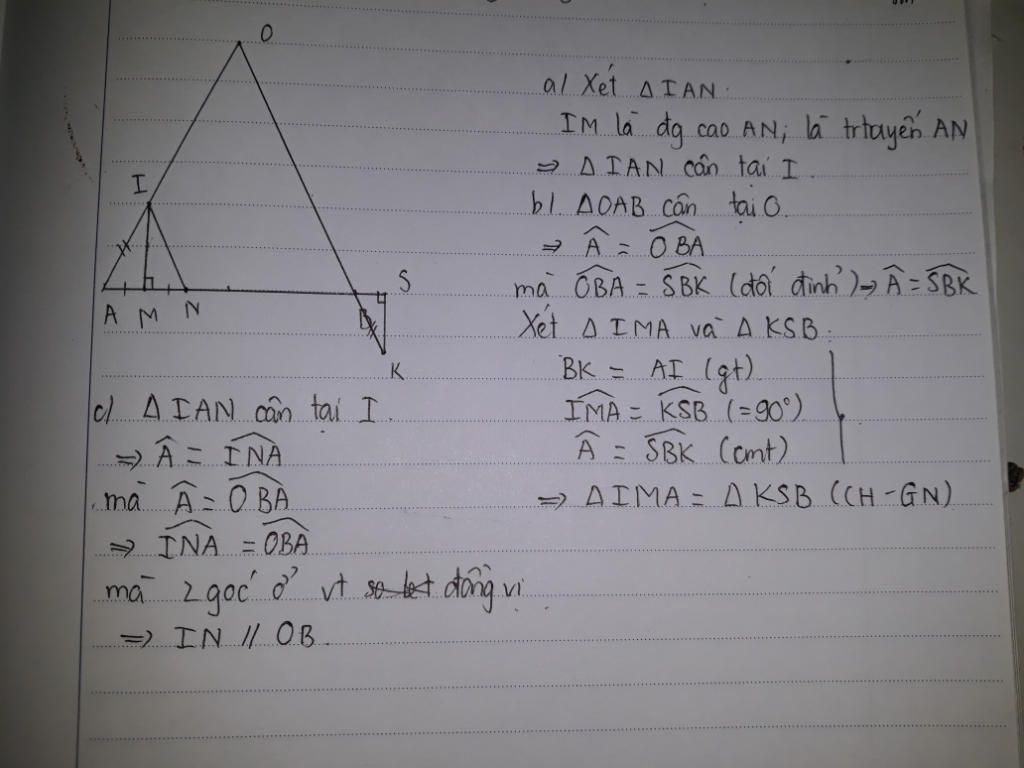 O
I
A
M
N
S
K
a/ Xét △IAN.
IM là đg cao AN; là trtuyến AN
⇒ △IAN cân tại I.
b/. △OAB cân tại O.
⇒ Â = \widehat{OBA}
mà \widehat{OBA} = \widehat{SBK} (đối đỉnh) → Â = \widehat{SBK}
Xét △IMA và △KSB:
BK = AI (gt)
\widehat{IMA} = \widehat{KSB} (=90°)
Â = \widehat{SBK} (cmt)
⇒ △IMA = △KSB (CH-GN)
c) △IAN cân tại I.
⇒ Â = \widehat{INA}
mà Â = \widehat{OBA}
⇒ \widehat{INA} = \widehat{OBA}
mà 2 góc ở vt đồng vị
⇒ IN // OB.